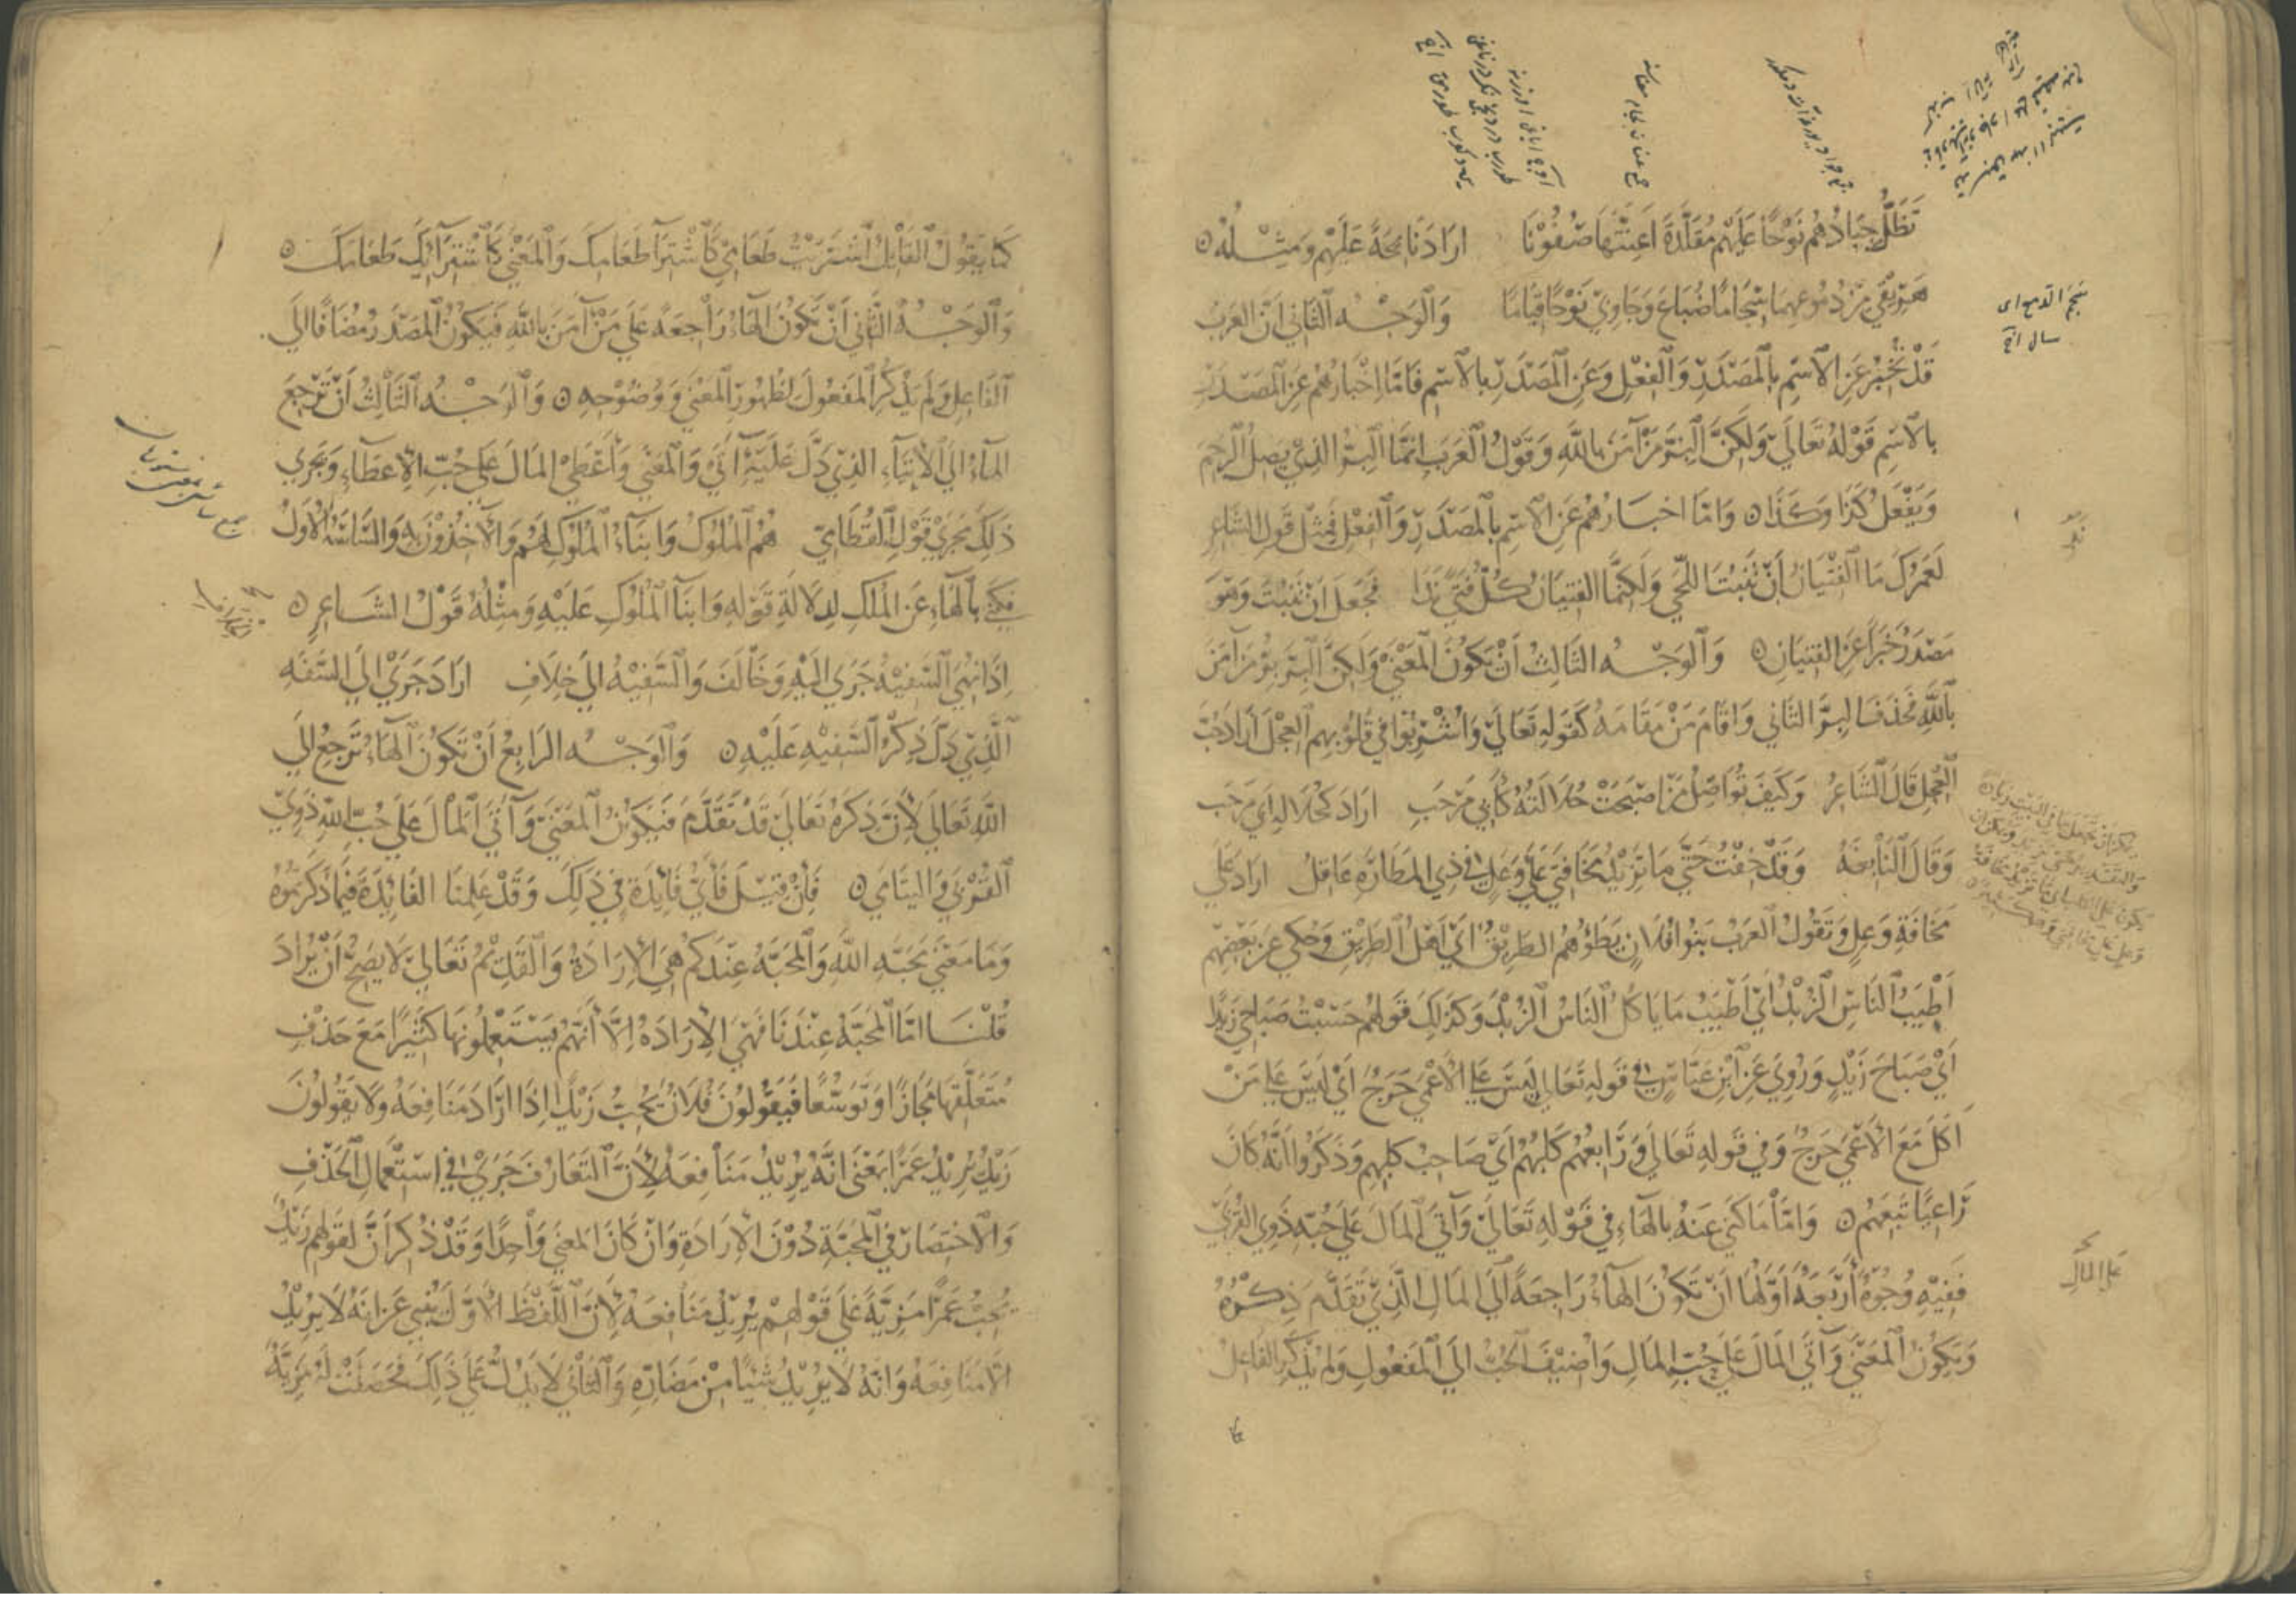 تَظَلُّ جِيَادُهُم نَوْحًا عَلَيْهِم مُقَلَّدَةً اَعِنَّتَهَا صُفُوْنَا ارَادَ نَائِحَةً عَلَيْهِم وَمِثْلُهُ
هَرِيْقِي مِنْ دُمُوعِهِمَا سِجَامًا ضُبَاعَ وَجَاوِبِي نَوْحًا قِيَامًا وَالْوَجْهُ الثَّانِي اَنَّ العَرَبَ
قَدْ تُخْبِرُ عَنِ الاسْمِ بِالْمَصْدَرِ وَالْفِعْلِ وَعَنِ الْمَصْدَرِ بِالاسْمِ فَامَّا اِخْبَارُهُم عَنِ الْمَصْدَرِ
بِالاسْمِ قَوْلُهُ تَعَالَى وَلَكِنَّ الْبِرَّ مَنْ آمَنَ بِاللَّهِ وَقَوْلُ الْعَرَبِ اِنَّمَا الْبِرُّ الَّذِي يَصِلُ الرَّحِمَ
وَيَفْعَلُ كَذَا وَكَذَا وَامَّا اخبَارُهُمْ عَنِ الاسْمِ بِالْمَصْدَرِ وَالْفِعْلِ فَمِثْلُ قَوْلِ الشَّاعِرِ
لَعَمْرُكَ مَا الفِتْيَانُ اَنْ تَنْبُتَ اللِّحَى وَلَكِنَّمَا الفِتيَانُ كُلُّ فَتًى نَدَا فَجَعَلَ اَنْ تَنْبُتَ وَهُوَ
مَصْدَرٌ خَبَرًا عَنِ الفِتيَانِ وَالْوَجْهُ الثَّالِثُ اَنْ يَكُونَ الْمَعْنَى وَلَكِنَّ الْبِرَّ بِرُّ مَنْ آمَنَ
بِاللَّهِ فَحَذَفَ الْبِرَّ الثَّانِي وَاقَامَ مَنْ مَقَامَهُ كَقَوْلِهِ تَعَالَى وَاُشْرِبُوا فِي قُلُوْبِهِمُ الْعِجْلَ اَرَادَ حُبَّ
الْعِجْلِ قَالَ الشَّاعِرُ وَكَيْفَ تُوَاصِلُ مَنْ اصْبَحَتْ خُلَالَتُهُ كَأَبِي مَرْحَبِ ارَادَ كَخُلَالَةِ اَبِي مَرْحَبٍ
وَقَالَ النَّابِغَةُ وَقَدْ خِفْتُ حَتَّى مَا تَزِيْدُ مَخَافَتِي عَلَى وَعِلٍ فِي ذِي المَطَارَةِ عَاقِلِ ارَادَ عَلَى
مَخَافَةِ وَعِلٍ وَتَقُولُ الْعَرَبُ بَنُوا فُلَانٍ يَطَؤُهُمُ الطَّرِيْقُ اَيْ اَهْلُ الطَّرِيْقِ وَحُكِيَ عَنْ بَعْضِهِم
اَطْيَبُ النَّاسِ الزُّبْدُ اَيْ اَطْيَبُ مَا يَاكُلُ النَّاسُ الزُّبْدُ وَكَذَلِكَ قَوْلُهُم حَسِبْتُ صَبَاحِي زَيْدًا
اَيْ صَبَاحَ زَيْدٍ وَرُوِيَ عَنِ ابْنِ عَبَّاسٍ فِي قَوْلِهِ تَعَالَى لَيْسَ عَلَى الْاَعْمَى حَرَجٌ اَيْ لَيْسَ عَلَى مَنْ
اَكَلَ مَعَ الْاَعْمَى حَرَجٌ وَفِي قَوْلِهِ تَعَالَى وَرَابِعُهُم كَلْبُهُمْ اَيْ صَاحِبُ كَلْبِهِم وَذَكَرُوا اَنَّهُ كَانَ
رَاعِيًا تَبِعَهُمْ وَامَّا مَا كَنَى عَنْهُ بِالْهَاءِ فِي قَوْلِهِ تَعَالَى وَآتَى الْمَالَ عَلَى حُبِّهِ ذَوِي الْقُرْبَى
فَفِيْهِ وُجُوْهٌ أَرْبَعَةٌ اَوَّلُهَا اَنْ تَكُوْنَ الهَاءُ رَاجِعَةً اِلَى المَالِ الَّذِي تَقَدَّمَ ذِكْرُهُ
وَيَكُوْنُ الْمَعْنَى وَآتَى الْمَالَ عَلَى حُبِّ المَالِ وَاُضِيْفَ الْحُبُّ اِلَى الْمَفْعُولِ وَلَمْ يُذْكَرِ الفَاعِلُ
سجم الدمع اى
سال
على المالِ
كَمَا يَقُوْلُ الْقَائِلُ اشْتَرَيْتُ طَعَامِي كَاشْتِرَاءِ طَعَامِكَ وَالْمَعْنَى كَاشْتِرَائِكَ طَعَامَكَ
وَالْوَجْهُ الثَّانِي اَنْ تَكُوْنَ الْهَاءُ رَاجِعَةً عَلَى مَنْ آمَنَ بِاللَّهِ فَيَكُوْنُ الْمَصْدَرُ مُضَافًا اِلَى
الْفَاعِلِ وَلَمْ يُذْكَرِ الْمَفْعُوْلُ لِظُهُوْرِ الْمَعْنَى وَوُضُوْحِهِ وَالْوَجْهُ الثَّالِثُ اَنْ تَرْجِعَ
الهَاءُ اِلَى الْاِيْتَاءِ الَّذِي دَلَّ عَلَيْهِ آتَى وَالْمَعْنَى وَأَعْطَى المَالَ عَلَى حُبِّ الْاِعْطَاءِ وَيَجْرِي
ذَلِكَ مَجْرَى قَوْلِ الْقُطَامِيِّ هُمُ الْمُلُوْكُ وَابْنَاءُ الْمُلُوْكِ لَهُمْ وَالْآخِذُوْنَ بِهِ وَالسَّاسَةُ الْاُوَلُ
فَكَنَى بِالْهَاءِ عَنِ الْمُلْكِ لِدِلَالَةِ قَوْلِهِ وَابْنَاءُ الْمُلُوْكِ عَلَيْهِ وَمِثْلُهُ قَوْلُ الشَّاعِرِ
اِذَا نُهِيَ السَّفِيْهُ جَرَى اِلَيْهِ وَخَالَفَ وَالسَّفِيْهُ اِلَى خِلَافِ ارَادَ جَرَى اِلَى السَّفَهِ
الَّذِي دَلَّ ذِكْرُ السَّفِيْهِ عَلَيْهِ وَالْوَجْهُ الرَّابِعُ اَنْ تَكُوْنَ الْهَاءُ تَرْجِعُ اِلَى
اللَّهِ تَعَالَى لِأَنَّ ذِكْرَهُ تَعَالَى قَدْ تَقَدَّمَ فَيَكُوْنُ الْمَعْنَى وَآتَى الْمَالَ عَلَى حُبِّ اللَّهِ ذَوِي
الْقُرْبَى وَالْيَتَامَى فَاِنْ قِيْلَ فَأَيُّ فَائِدَةٍ فِي ذَلِكَ وَقَدْ عَلِمْنَا الفَائِدَةَ فِيْمَا ذَكَرْتُمُوْهُ
وَمَا مَعْنَى مَحَبَّةِ اللَّهِ وَالْمَحَبَّةُ عِنْدَكُمْ هِيَ الْاِرَادَةُ وَالْقَدِيْمُ تَعَالَى لَا يَصِحُّ اَنْ يُرَادَ
قُلْنَا امَّا الْمَحَبَّةُ عِنْدَنَا فَهِيَ الْاِرَادَةُ اِلَّا أَنَّهُمْ يَسْتَعْمِلُوْنَهَا كَثِيْرًا مَعَ حَذْفِ
مُتَعَلَّقِهَا مَجَازًا وَتَوَسُّعًا فَيَقُوْلُوْنَ فُلَانٌ يُحِبُّ زَيْدًا اِذَا ارَادَ مَنَافِعَهُ وَلَا يَقُوْلُوْنَ
زَيْدٌ يُرِيْدُ عَمْرًا بِمَعْنَى اَنَّهُ يُرِيْدُ مَنَافِعَهُ لِأَنَّ التَّعَارُفَ جَرَى فِي اِسْتِعْمَالِ الْحَذْفِ
وَالْاِخْتِصَارِ فِي الْمَحَبَّةِ دُوْنَ الْاِرَادَةِ وَانْ كَانَ الْمَعْنَى وَاحِدًا وَقَدْ ذُكِرَ اَنَّ لِقَوْلِهِم زَيْدٌ
يُحِبُّ عَمْرًا مَزِيَّةً عَلَى قَوْلِهِمْ يُرِيْدُ مَنَافِعَهُ لِأَنَّ اللَّفْظَ الْاَوَّلَ يُنْبِي عَنْ اَنَّهُ لَا يُرِيْدُ
اِلَّا مَنَافِعَهُ وَاَنَّهُ لَا يُرِيْدُ شَيْئًا مِنْ مَضَارِّهِ وَالثَّانِي لَا يَدُلُّ عَلَى ذَلِكَ فَحَصَلَتْ لَهُ مَزِيَّةٌ